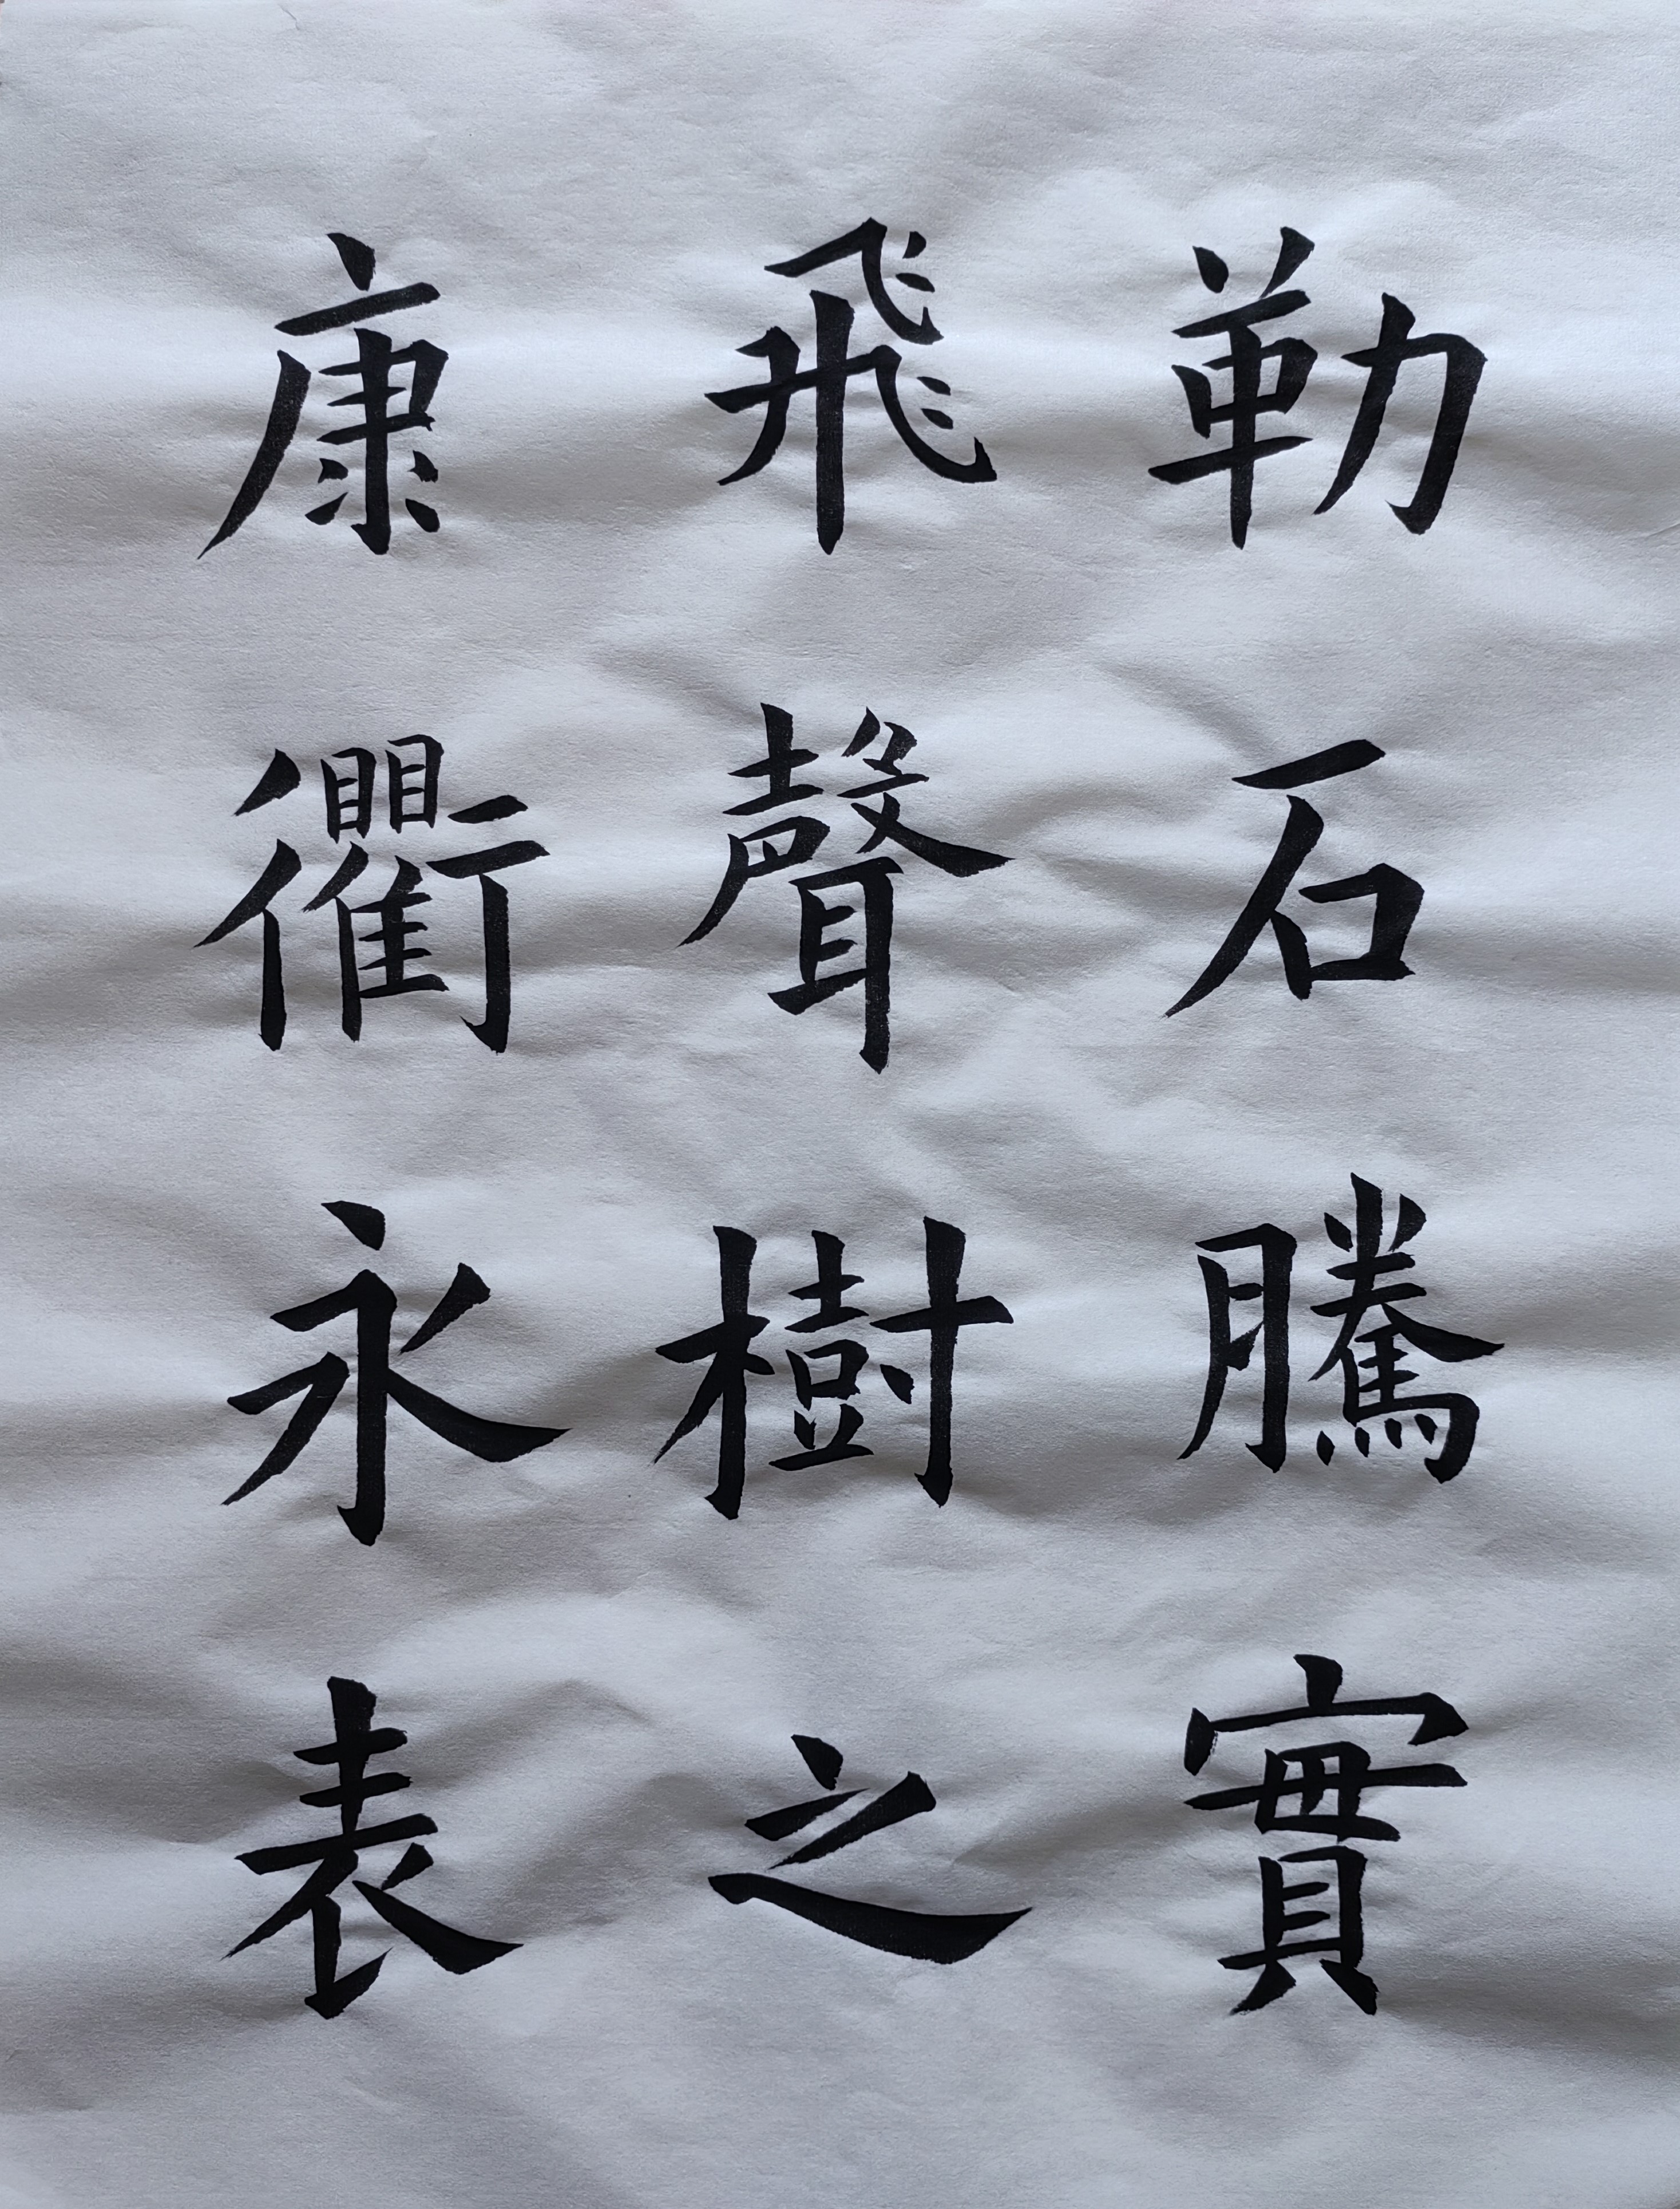 勒石騰實
飛聲樹之
康衢永表